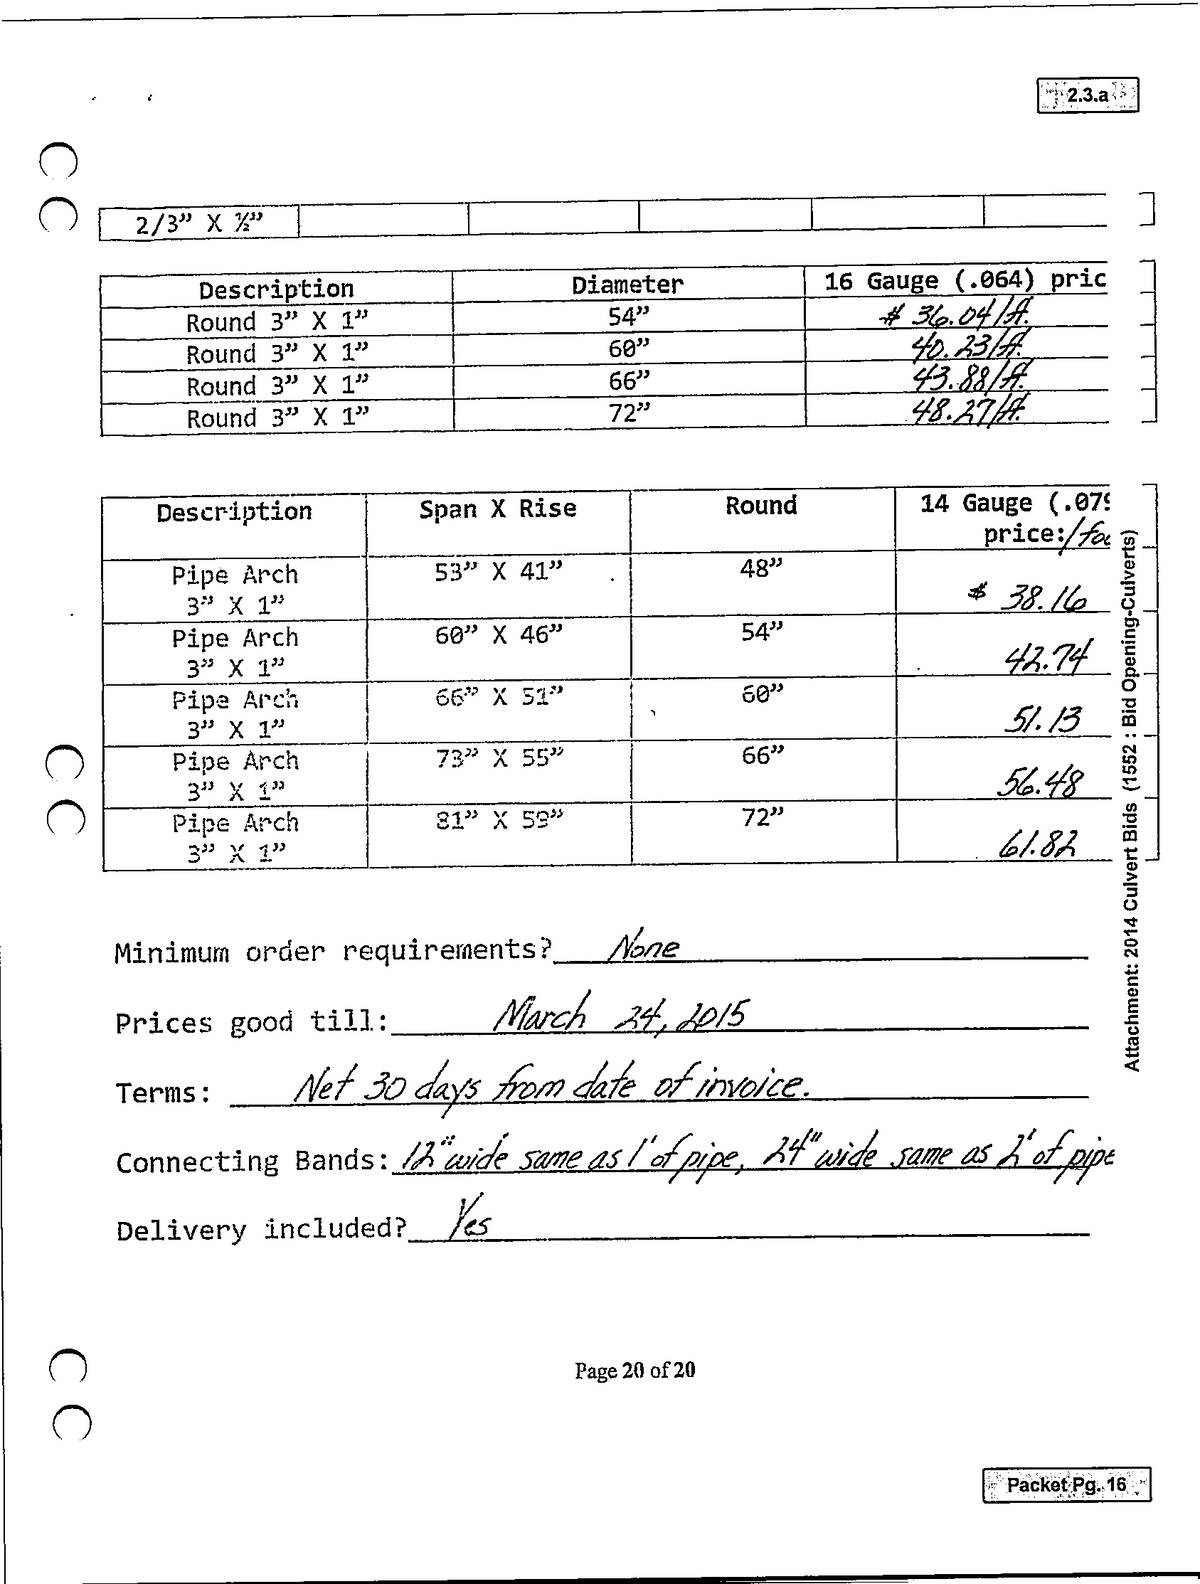 2.3.a
2/3” X ½”
Description Diameter 16 Gauge (.064) pric
Round 3” X 1” 54” $ 36.04/ft.
Round 3” X 1” 60” 40.23/ft.
Round 3” X 1” 66” 43.88/ft.
Round 3” X 1” 72” 48.27/ft.
Description Span X Rise Round 14 Gauge (.079
price:/foo
Pipe Arch 53” X 41” 48”
3” X 1” $ 38.16
Pipe Arch 60” X 46” 54”
3” X 1” 42.74
Pipe Arch 66” X 51” 60”
3” X 1” 51.13
Pipe Arch 73” X 55” 66”
3” X 1” 56.48
Pipe Arch 81” X 59” 72”
3” X 1” 61.82
Minimum order requirements? None
Prices good till: March 24, 2015
Terms: Net 30 days from date of invoice.
Connecting Bands: 12" wide same as 1' of pipe, 24" wide same as 2' of pipe
Delivery included? Yes
Attachment: 2014 Culvert Bids (1552 : Bid Opening-Culverts)
Page 20 of 20
Packet Pg. 16